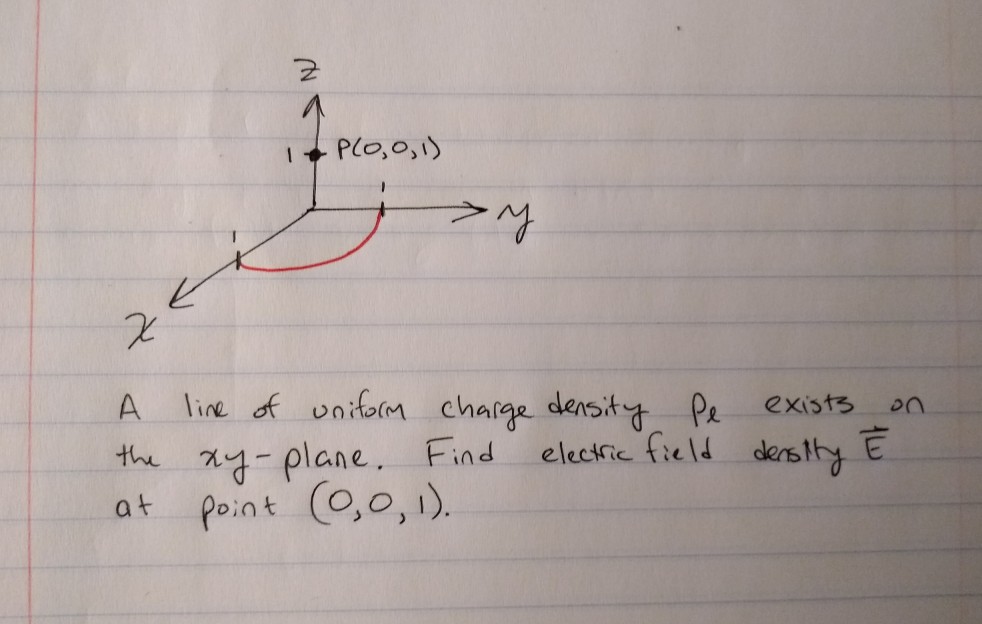 z
1 P(0,0,1)
1
y
1
x
A line of uniform charge density ρℓ exists on
the xy-plane. Find electric field density E⃗
at point (0,0,1).